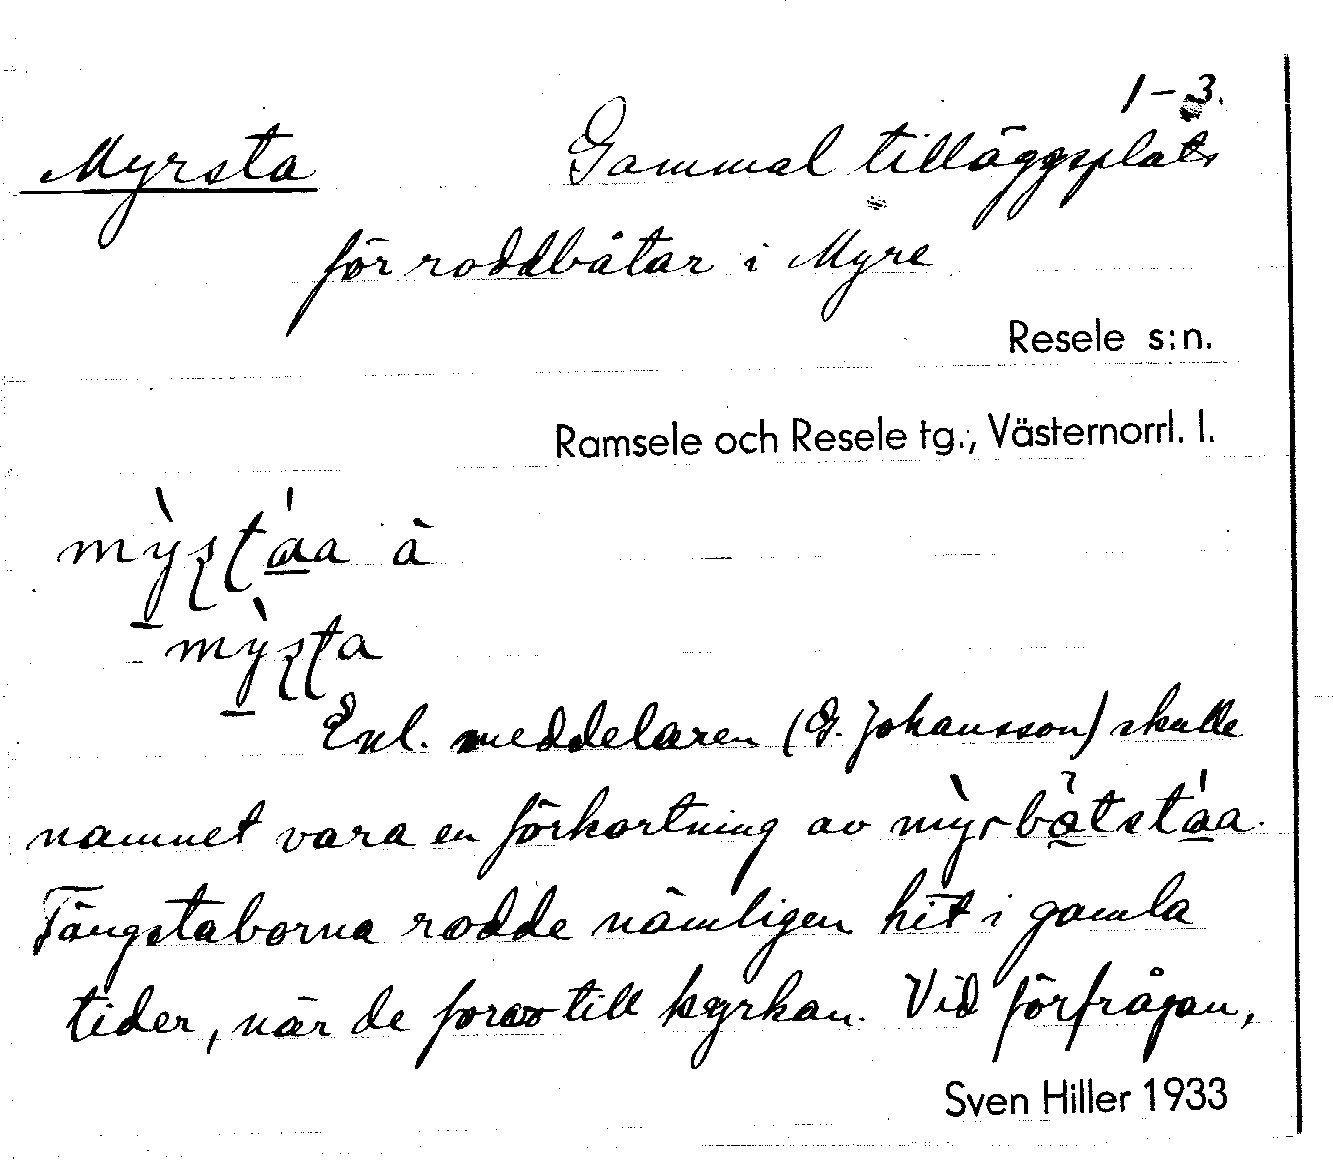 1-3.
Myrsta Gammal tilläggsplats
för roddbåtar i Myre
Resele s:n.
Ramsele och Resele tg., Västernorrl. l.
Enl. meddelaren (G. Johansson) skulle
namnet vara en förkortning av
Tängstaborna rodde nämligen hit i gamla
tider, när de foro till kyrkan. Vid förfrågan,
Sven Hiller 1933